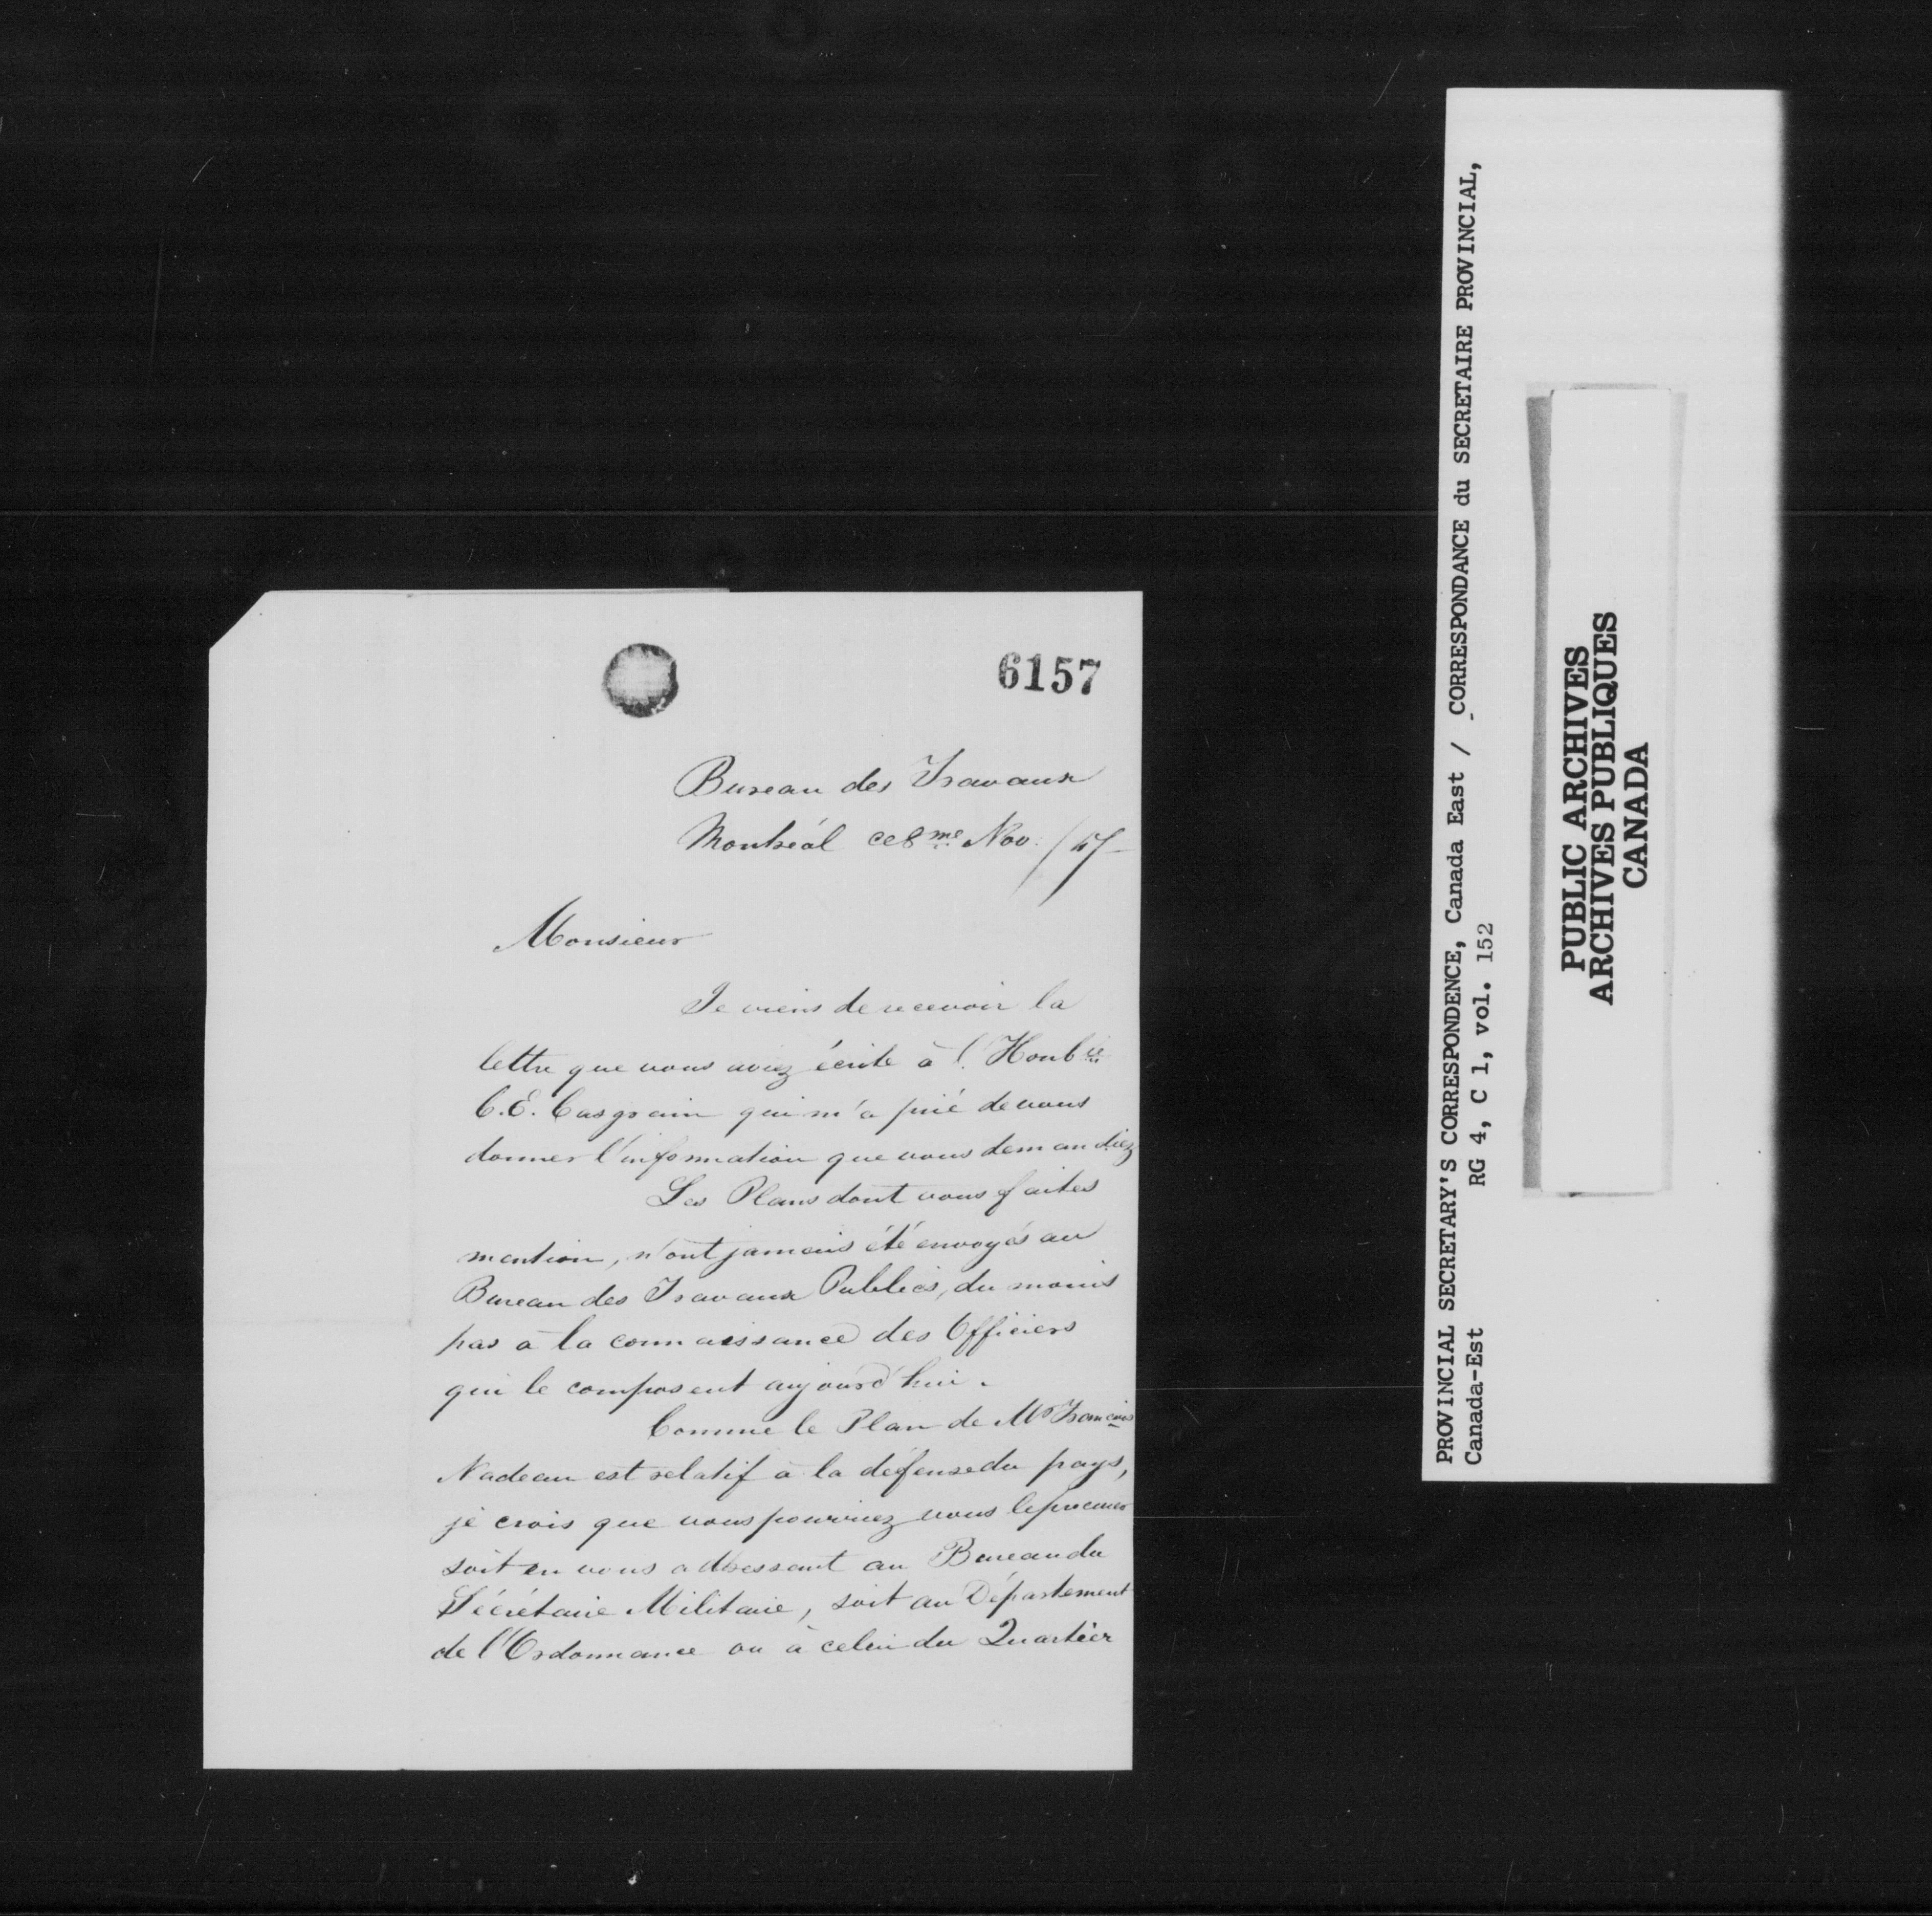 6157
Bureau des Travaux
Montréal ce 8me Nov. /47
Monsieur
Je viens de recevoir la
lettre que vous aviez écrite à l'Honble
C. E. Casgrain qui m'a prié de vous
donner l'information que vous demandiez
Les Plans dont vous faites
mention, n'ont jamais été envoyés au
Bureau des Travaux Publics, du moins
pas à la connaissance des Officiers
qui le composent aujourd'hui.
Comme le Plan de Mr François
Nadeau est relatif à la défense du pays,
je crois que vous pourriez vous le procurer
soit en vous adressant au Bureau du
Sécrétaire Militaire, soit au Département
de l'Ordonnance ou à celui du Quartier
PROVINCIAL SECRETARY'S CORRESPONDENCE, Canada East / CORRESPONDANCE du SECRETAIRE PROVINCIAL,
Canada-Est RG 4, C 1, vol. 152
PUBLIC ARCHIVES
ARCHIVES PUBLIQUES
CANADA